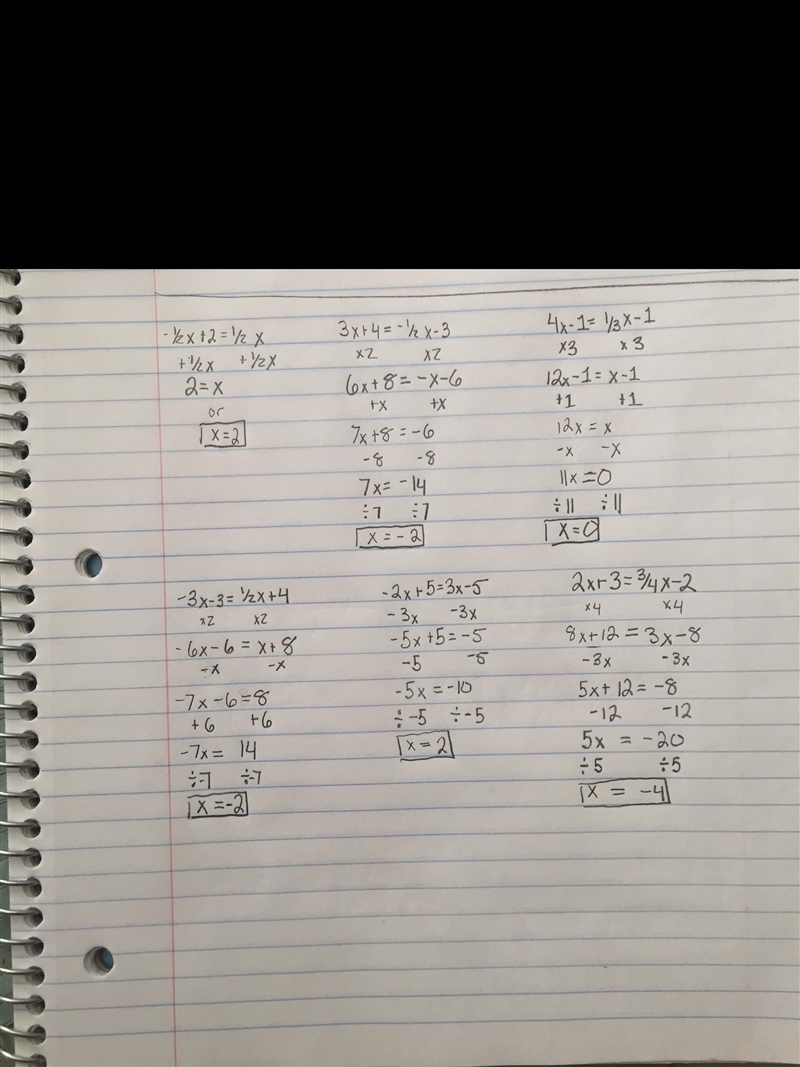 -1/2x+2=1/2x
+1/2x +1/2x
2=x
or
x=2
3x+4=-1/2x-3
x2 x2
6x+8=-x-6
+x +x
7x+8=-6
-8 -8
7x=-14
÷7 ÷7
x=-2
4x-1=1/3x-1
x3 x3
12x-1=x-1
+1 +1
12x=x
-x -x
11x=0
÷11 ÷11
x=0
-3x-3=1/2x+4
x2 x2
-6x-6=x+8
-x -x
-7x-6=8
+6 +6
-7x=14
÷-7 ÷-7
x=-2
-2x+5=3x-5
-3x -3x
-5x+5=-5
-5 -5
-5x=-10
÷-5 ÷-5
x=2
2x+3=3/4x-2
x4 x4
8x+12=3x-8
-3x -3x
5x+12=-8
-12 -12
5x=-20
÷5 ÷5
x=-4